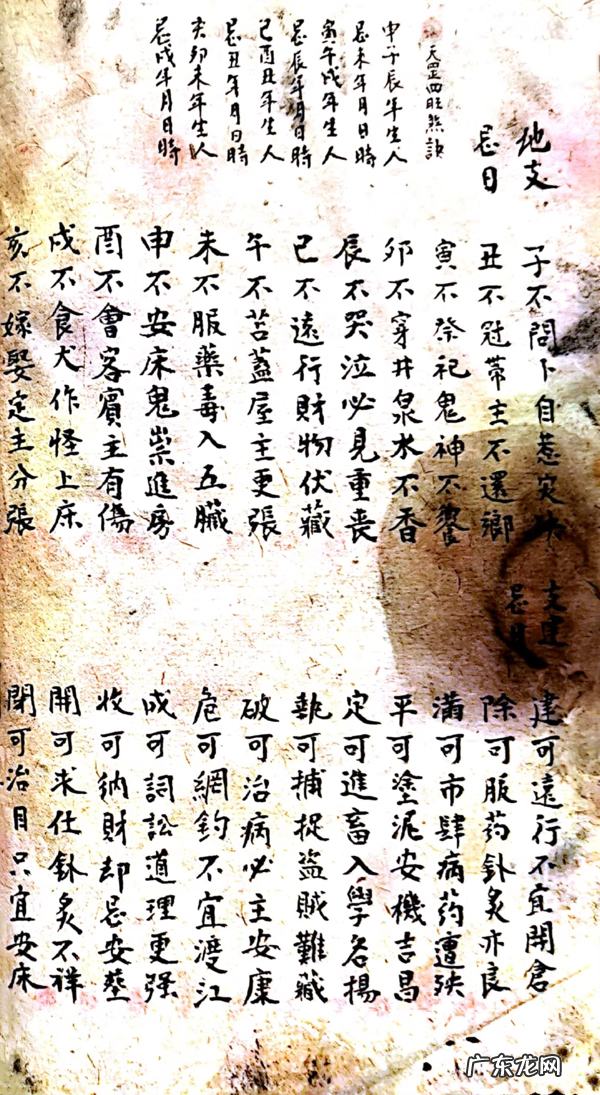 天罡四旺煞訣
申子辰年生人
忌未年月日時
寅午戌年生人
忌辰年月日時
巳酉丑年生人
忌丑年月日時
亥卯未年生人
忌戌年月日時
地支
忌日
子不問卜自惹災殃
丑不冠帶主不還鄉
寅不祭祀鬼神不饗
卯不穿井泉水不香
辰不哭泣必見重喪
巳不遠行財物伏藏
午不苫蓋屋主更張
未不服藥毒入五臟
申不安床鬼祟進房
酉不會客賓主有傷
戌不食犬作怪上床
亥不嫁娶定主分張
支建
忌日
建可遠行不宜開倉
除可服药針灸亦良
滿可市肆病药遭殃
平可塗泥安機吉昌
定可進畜入學名揚
執可捕捉盜賊難藏
破可治病必主安康
危可網釣不宜渡江
成可詞訟道理更强
收可納財却忌安葬
開可求仕針灸不祥
閉可治目只宜安床
广东龙网